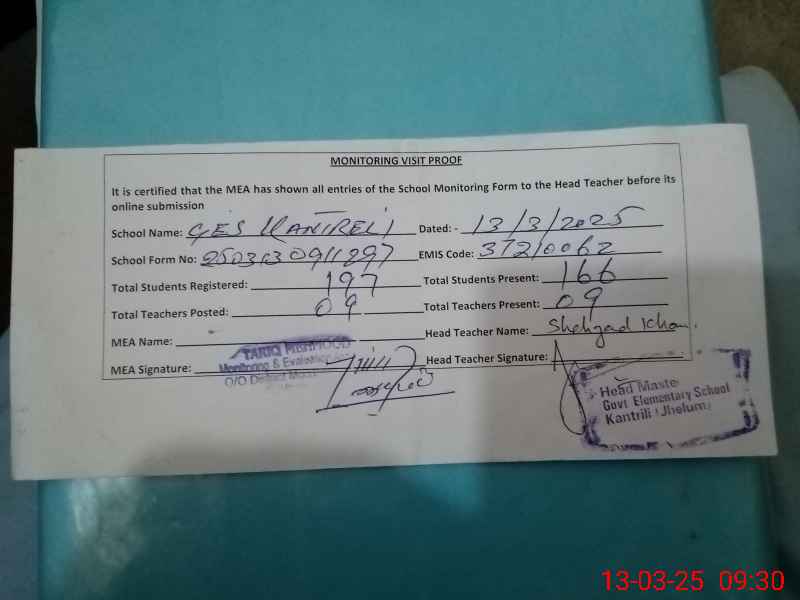 MONITORING VISIT PROOF
It is certified that the MEA has shown all entries of the School Monitoring Form to the Head Teacher before its
online submission
School Name: GES KANTRELI Dated: - 13/3/2025
School Form No: EMIS Code: 37210062
Total Students Registered: 197 Total Students Present: 166
Total Teachers Posted: 09 Total Teachers Present: 09
MEA Name: Head Teacher Name: Shehzad Khan
TARIQ MEHMOOD
Monitoring & Evaluation
O/O District
MEA Signature: Head Teacher Signature:
Head Maste
Govt Elementary School
Kantrili (Jhelum)
13-03-25 09:30